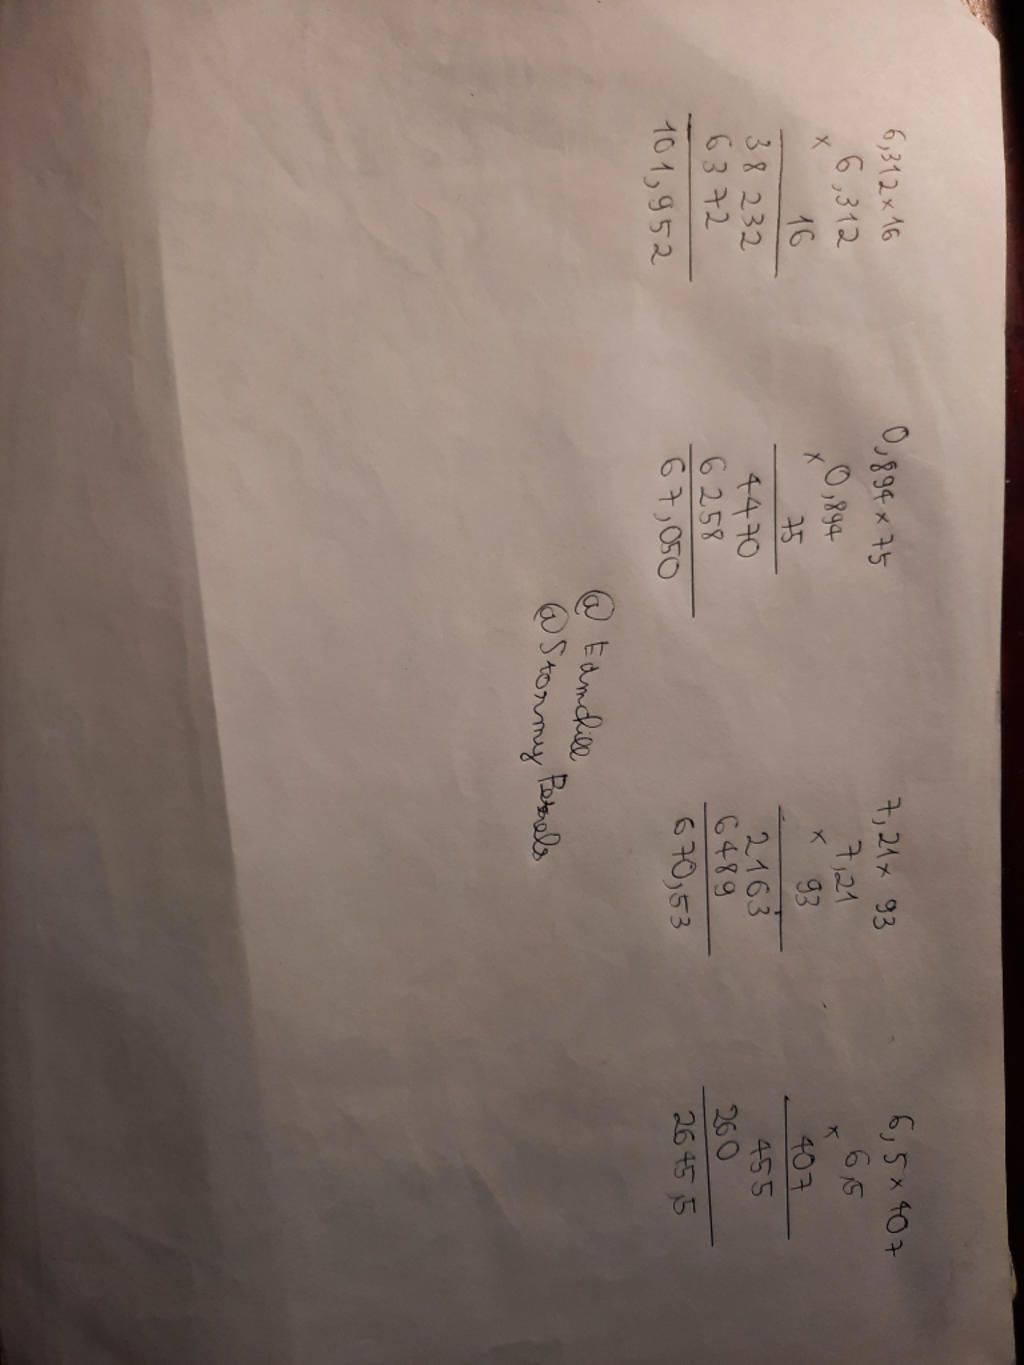 6,312 x 16
6,312
x 16
38 232
6 3 7 2
101,952
0,894 x 75
0,894
x 75
4470
6258
67,050
7,21 x 93
7,21
x 93
2163
6489
670,53
6,5 x 407
6,5
x 407
455
260
2645,5
@
@Stormy